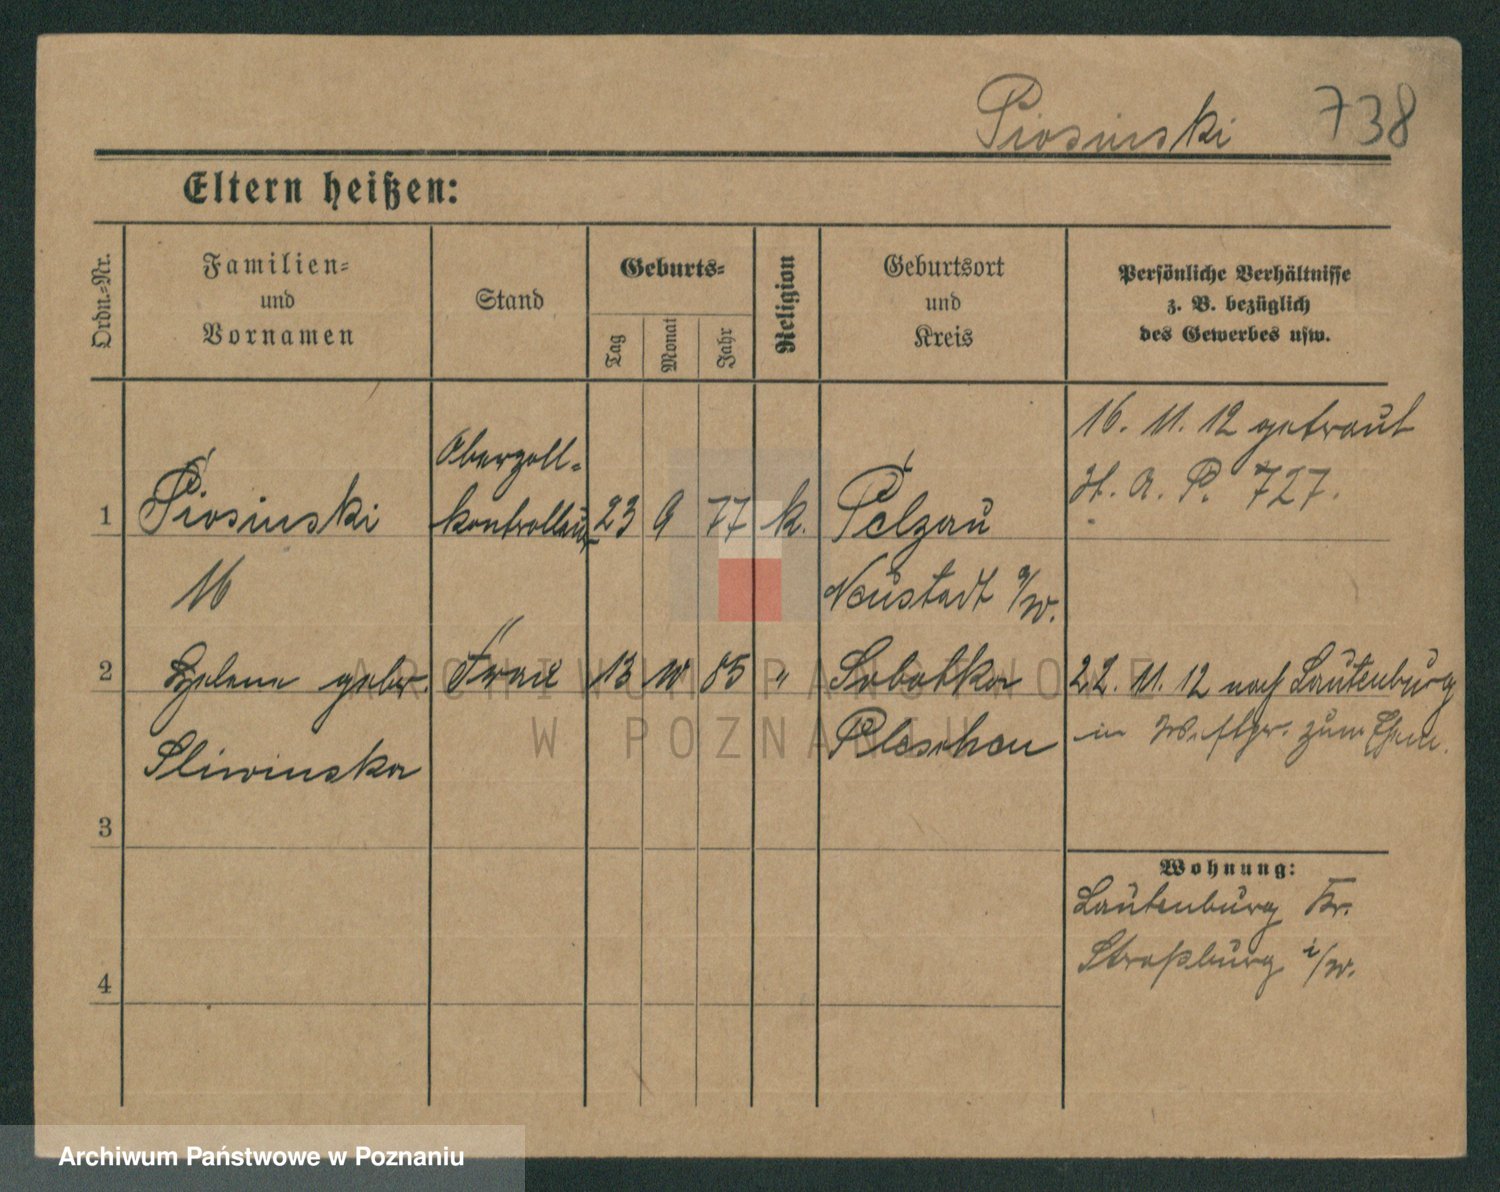 Piosinski 738
Eltern heißen:
Ordn.-Nr.
Familien-
und
Vornamen
Stand
Geburts-
Tag
Monat
Jahr
Religion
Geburtsort
und
Kreis
Persönliche Verhältnisse
z. B. bezüglich
des Gewerbes usw.
16. 11. 12 getraut
St. A. P. 727.
Oberzoll-
1 Piosinski kontrolleur 23 9 77 k. Pelzau
16 Neustadt W.
2 Helene gebor. Frau 13 85 " Sobotka 22. 11. 12 nach Lautenburg
Sliwinska Pleschen in Westpr. zum Ehem.
3
Wohnung:
Lautenburg Kr.
Straßburg i/W.
4
ARCHIWUM PAŃSTWOWE
W POZNANIU
Archiwum Państwowe w Poznaniu